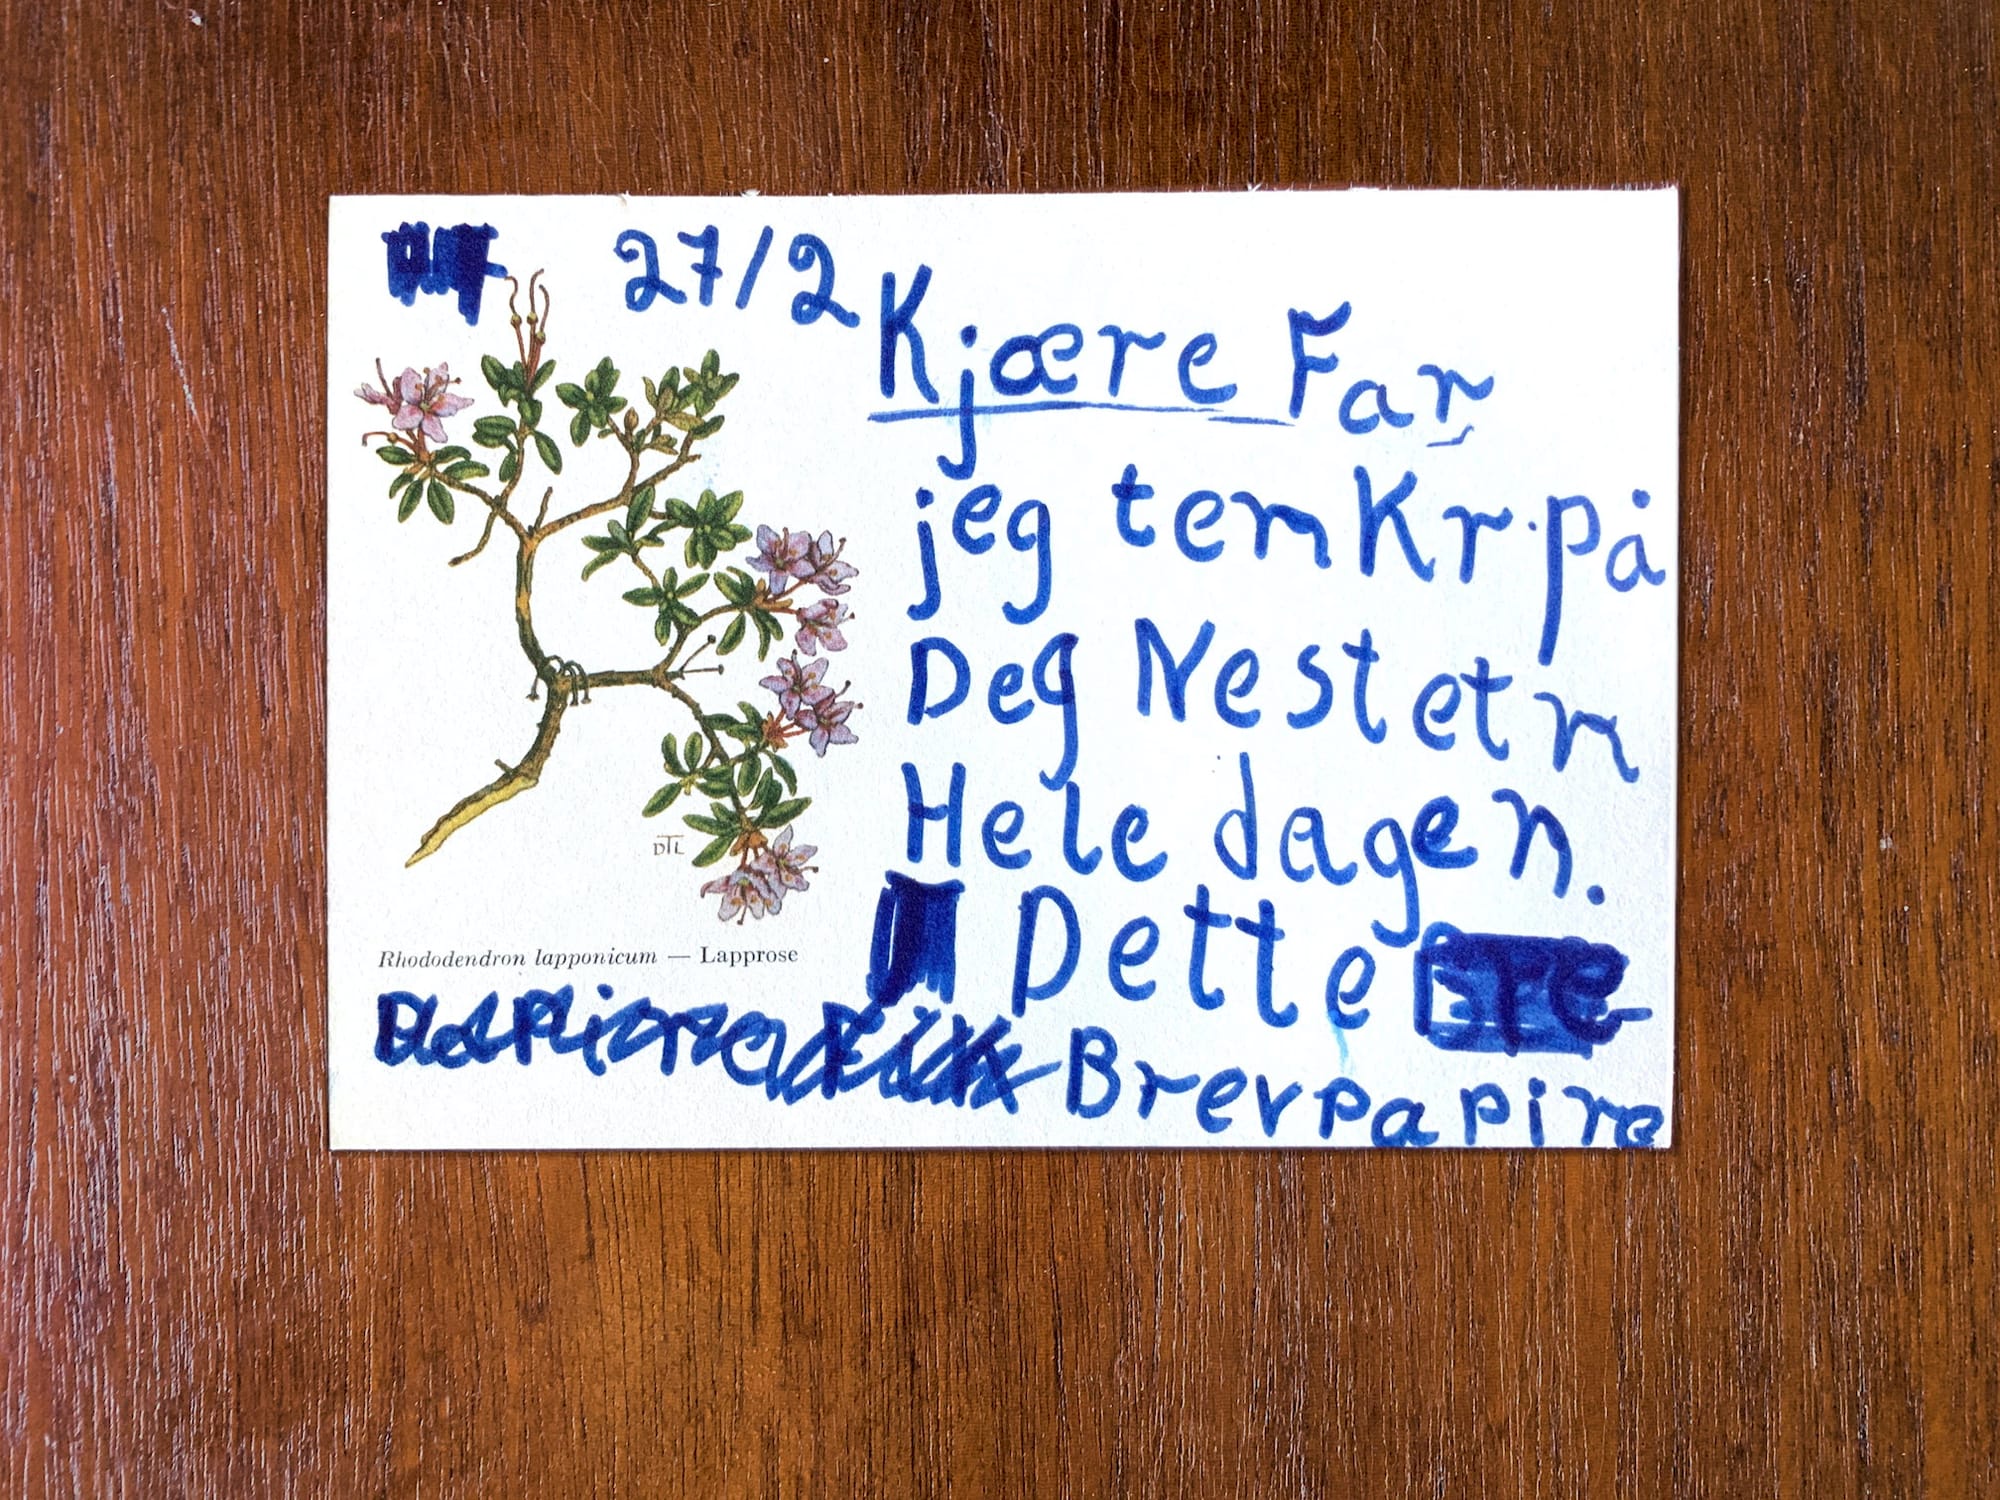 27/2
Kjære Far
jeg tenKr på
Deg Nestetn
Hele dagen.
Dette
Brevpapire
DTL
Rhododendron lapponicum — Lapprose